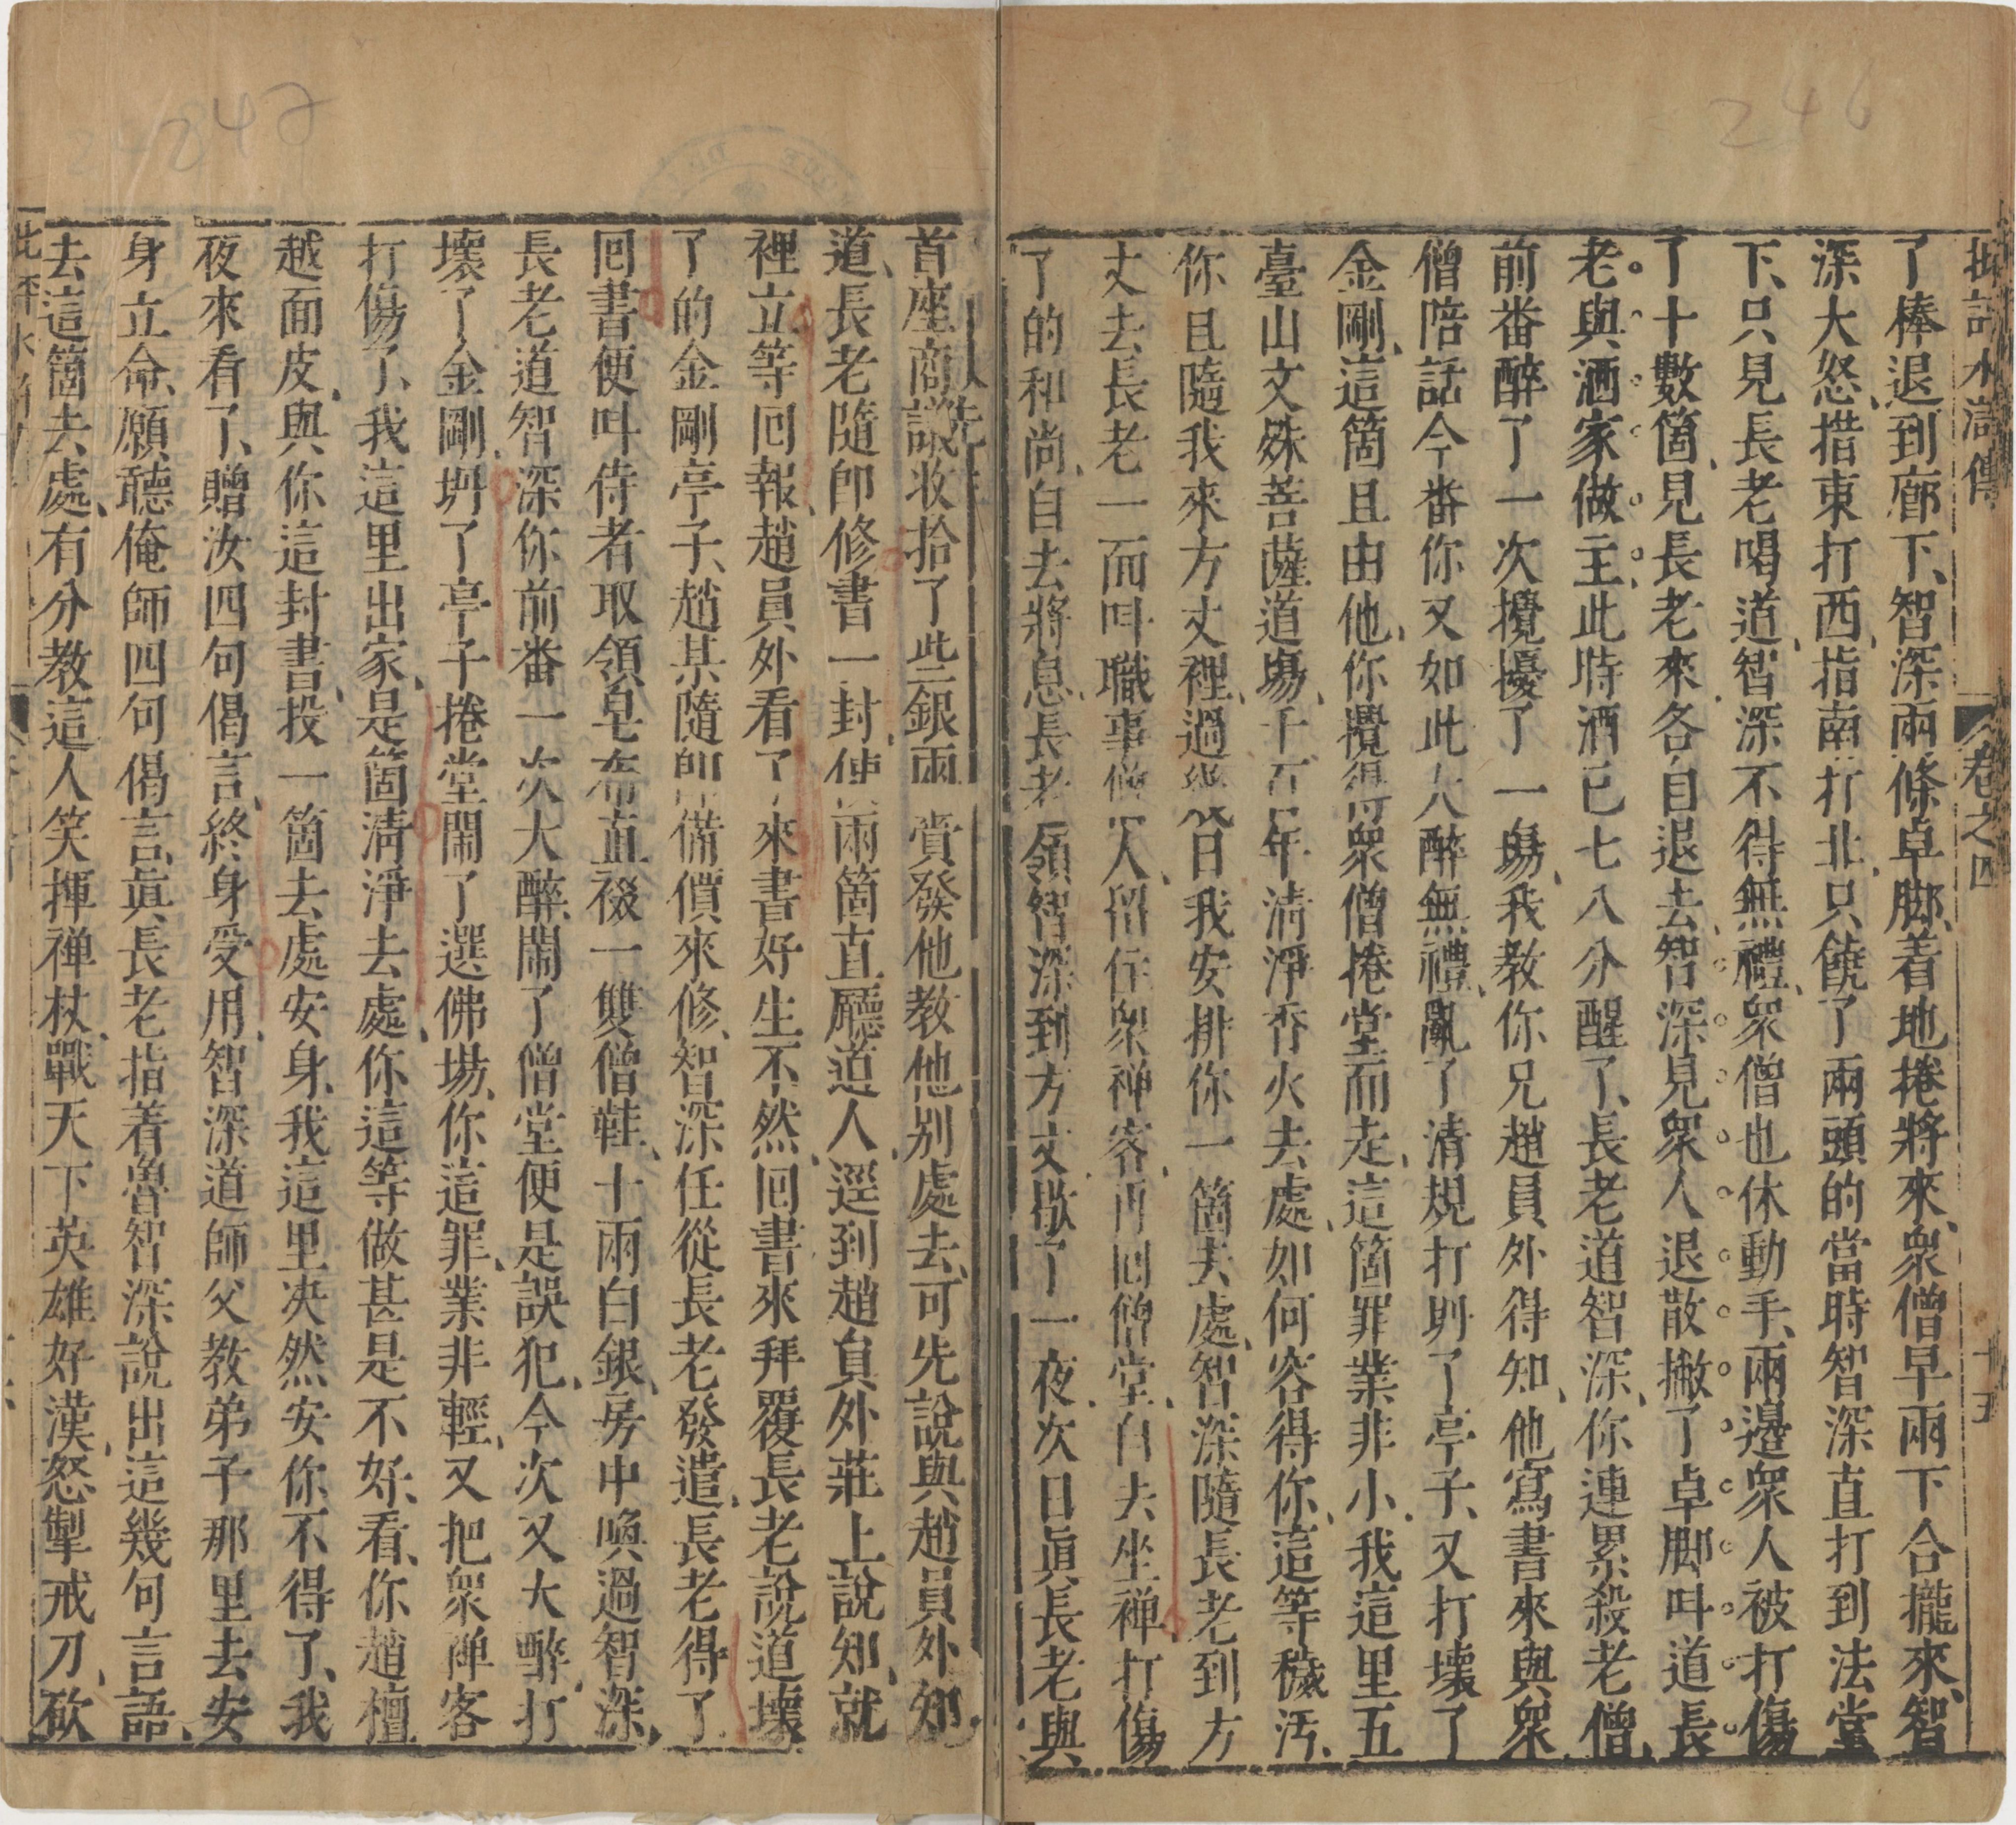 批評水滸傳 卷之四 十五
了棒退到廊下、智深兩條卓脚、着地捲將來、衆僧早兩下合攏來、智
深大怒、揩東打西、指南打北、只饒了兩頭的、當時智深直打到法堂
下、只見長老喝道、智深不得無禮、衆僧也休動手、兩邊衆人被打傷
了十數箇、見長老來、各自退去、智深見衆人退散、撇了卓脚、叫道、長
老與洒家做主、此時酒已七八分醒了、長老道、智深、你連累殺老僧、
前番醉了一次、攪擾了一場、我教你兄趙員外得知、他寫書來與衆
僧陪話、今番你又如此大醉無禮、亂了清規、打坍了亭子、又打壞了
金剛、這箇且由他、你攪得衆僧捲堂而走、這箇罪業非小、我這里五
臺山文殊菩薩道場、千百年清淨香火去處、如何容得你、這等穢汚、
你且隨我來方丈裡、過幾日、我安排你一箇去處、智深隨長老到方
丈去、長老一面叫職事僧人、留住衆禪客、再回僧堂、自去坐禪、打傷
了的和尚、自去將息、長老領智深到方丈、歇了一夜、次日眞長老與
首座商議、收拾了些銀兩、賫發他、教他別處去、可先說與趙員外知
道、長老隨卽修書一封、使兩箇直廳道人、逕到趙員外莊上說知、就
裡立等回報、趙員外看了來書、好生不然、回書來拜覆長老說道、壞
了的金剛亭子、趙某隨卽備價來修、智深任從長老發遣、長老得了
回書、便叫侍者取領皂布直裰、一雙僧鞋、十兩白銀、房中喚過智深、
長老道、智深你前番一次大醉、鬧了僧堂、便是誤犯、今次又大醉、打
壞了金剛、坍了亭子、捲堂鬧了選佛場、你這罪業非輕、又把衆禪客
打傷了、我這里出家、是箇清淨去處、你這等做甚是不好、看你趙檀
越面皮、與你這封書、投一箇去處安身、我這里决然安你不得了、我
夜來看了、贈汝四句偈言、終身受用、智深道、師父教弟子那里去安
身立命、願聽俺師四句偈言、眞長老指着魯智深說出這幾句言語、
去這箇去處、有分教、這人笑揮禪杖、戰天下英雄好漢、怒掣戒刀、砍